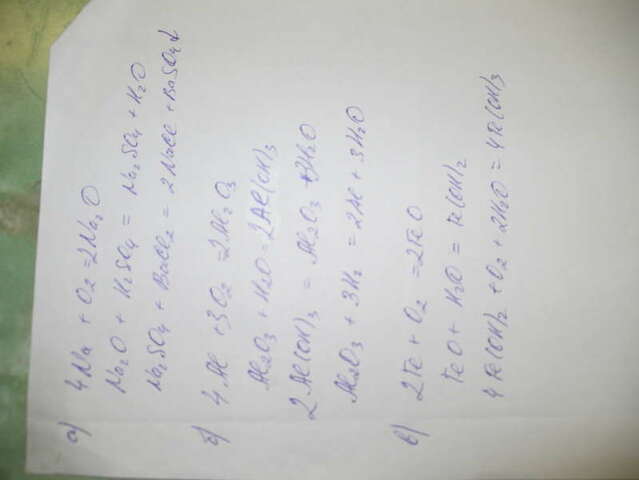 а) 4Na + O2 = 2Na2O
Na2O + H2SO4 = Na2SO4 + H2O
Na2SO4 + BaCl2 = 2NaCl + BaSO4↓
б) 4Al + 3O2 = 2Al2O3
Al2O3 + H2O = 2Al(OH)3
2Al(OH)3 = Al2O3 + 3H2O
Al2O3 + 3H2 = 2Al + 3H2O
в) 2Fe + O2 = 2FeO
FeO + H2O = Fe(OH)2
4Fe(OH)2 + O2 + 2H2O = 4Fe(OH)3